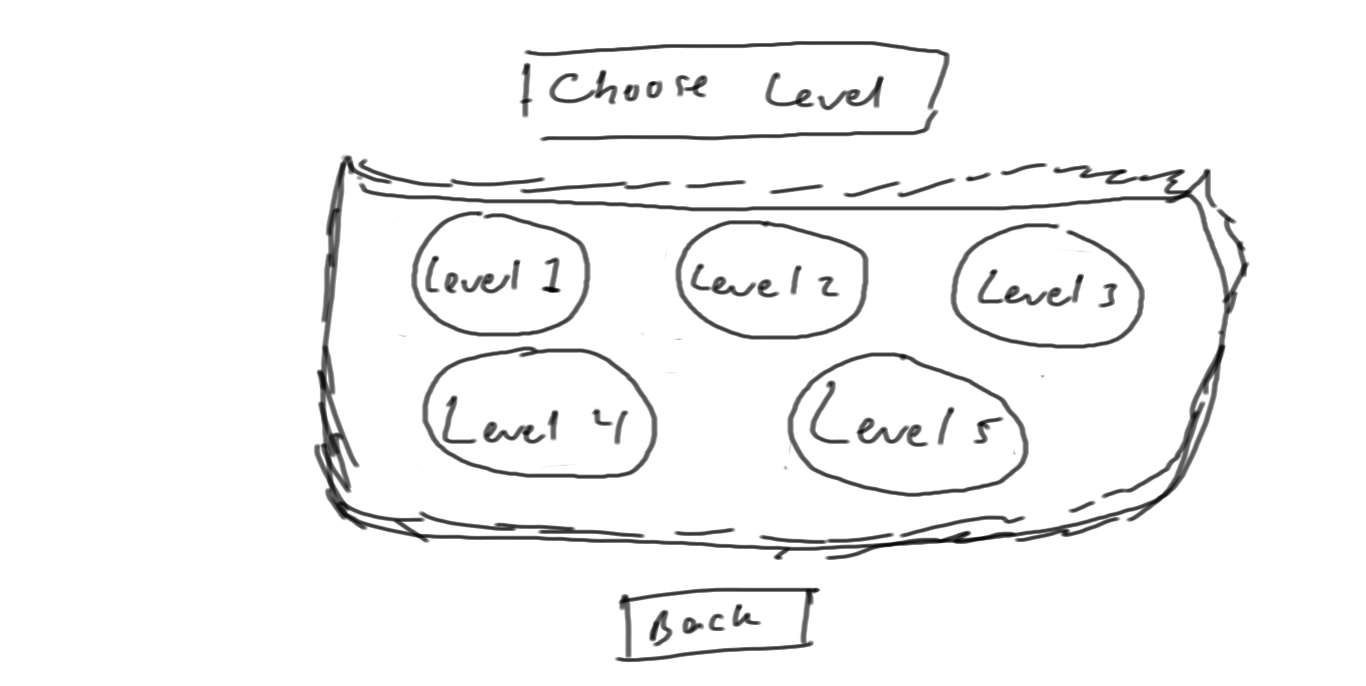 Choose Level
Level 1 Level 2 Level 3
Level 4 Level 5
Back